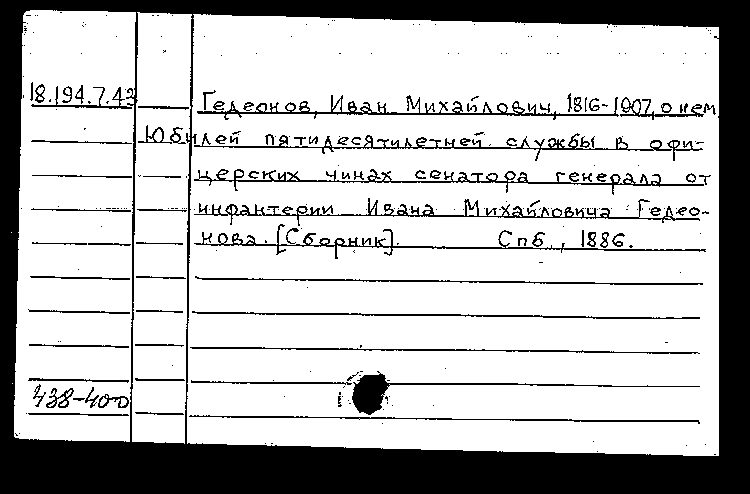 18.194.7.43 Гедеонов, Иван Михайлович, 1816-1907, о нем
Юбилей пятидесятилетней службы в офи-
церских чинах сенатора генерала от
инфантерии Ивана Михайловича Гедео-
нова. [Сборник]. Спб., 1886.
438-400